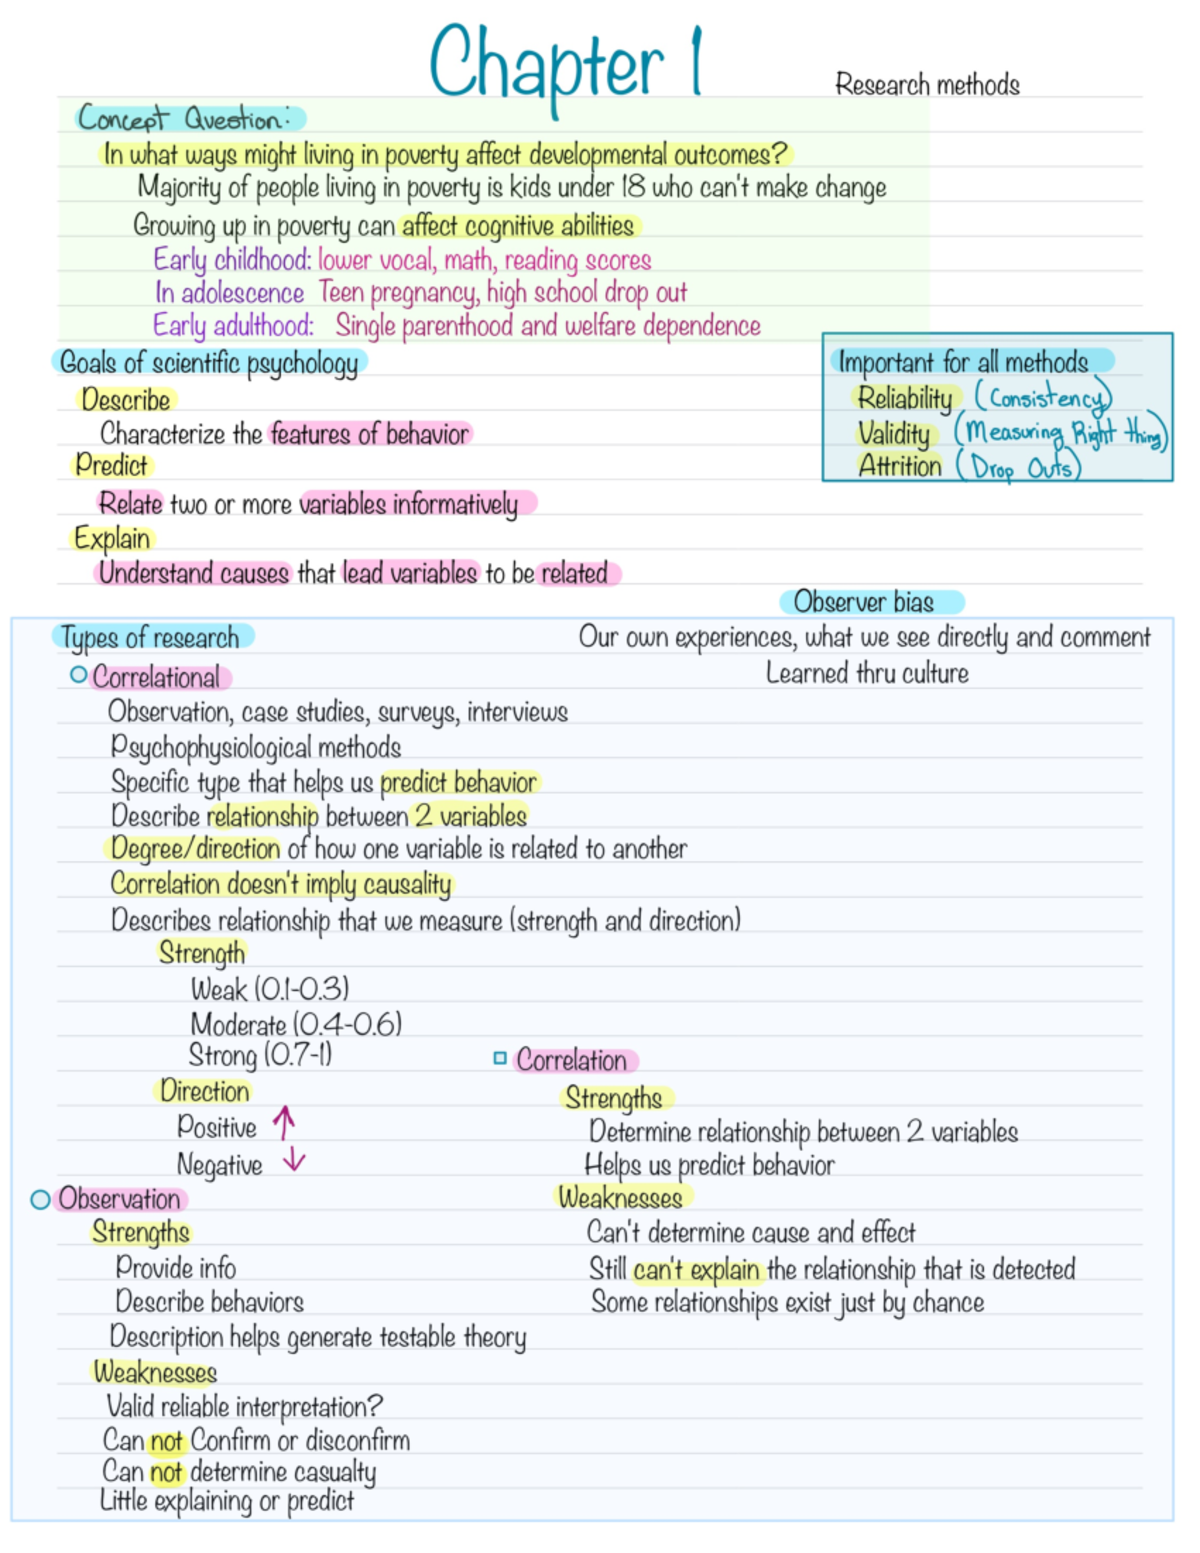 Chapter 1
Research methods
Concept Question:
In what ways might living in poverty affect developmental outcomes?
Majority of people living in poverty is kids under 18 who can't make change
Growing up in poverty can affect cognitive abilities
Early childhood: lower vocal, math, reading scores
In adolescence Teen pregnancy, high school drop out
Early adulthood: Single parenthood and welfare dependence
Goals of scientific psychology
Describe
Characterize the features of behavior
Predict
Relate two or more variables informatively
Explain
Understand causes that lead variables to be related
Important for all methods
Reliability (Consistency)
Validity (Measuring Right thing)
Attrition (Drop Outs)
Observer bias
Our own experiences, what we see directly and comment
Learned thru culture
Types of research
Correlational
Observation, case studies, surveys, interviews
Psychophysiological methods
Specific type that helps us predict behavior
Describe relationship between 2 variables
Degree/direction of how one variable is related to another
Correlation doesn't imply causality
Describes relationship that we measure (strength and direction)
Strength
Weak (0.1-0.3)
Moderate (0.4-0.6)
Strong (0.7-1)
Direction
Positive ↑
Negative ↓
Correlation
Strengths
Determine relationship between 2 variables
Helps us predict behavior
Weaknesses
Can't determine cause and effect
Still can't explain the relationship that is detected
Some relationships exist just by chance
Observation
Strengths
Provide info
Describe behaviors
Description helps generate testable theory
Weaknesses
Valid reliable interpretation?
Can not Confirm or disconfirm
Can not determine casualty
Little explaining or predict